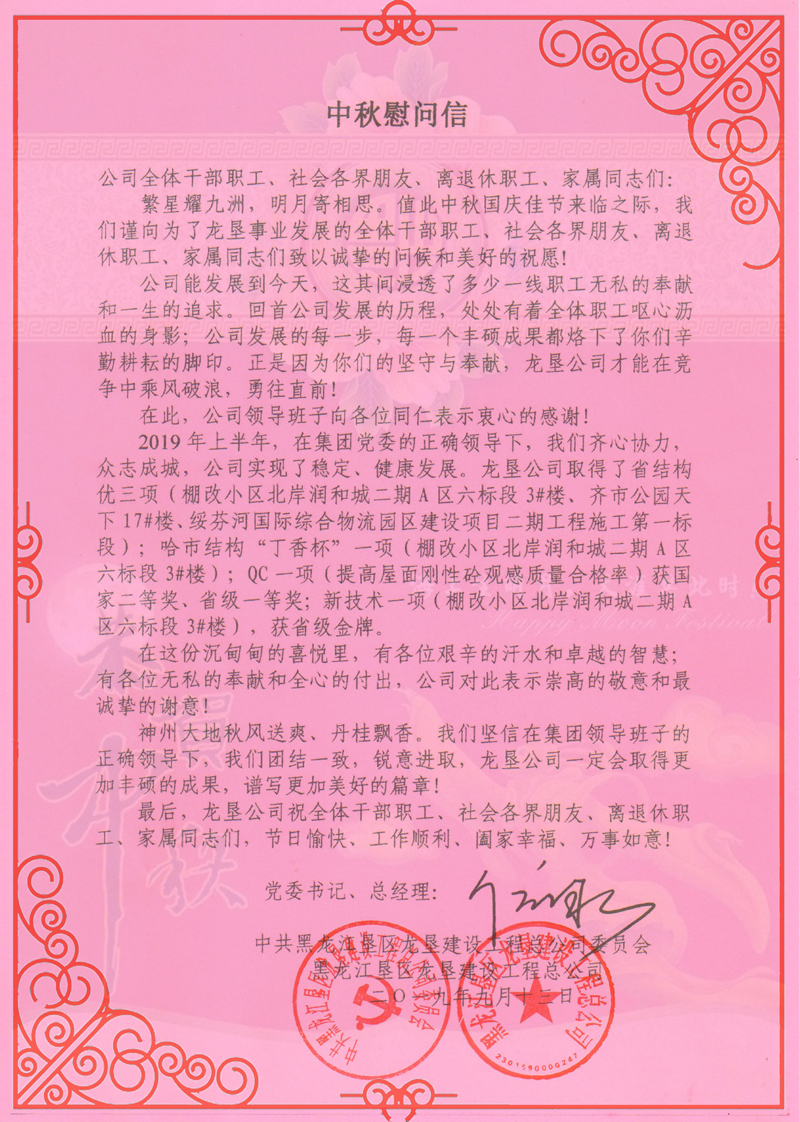 中秋慰问信
公司全体干部职工、社会各界朋友、离退休职工、家属同志们：
繁星耀九洲，明月寄相思。值此中秋国庆佳节来临之际，我
们谨向为了龙垦事业发展的全体干部职工、社会各界朋友、离退
休职工、家属同志们致以诚挚的问候和美好的祝愿！
公司能发展到今天，这其间浸透了多少一线职工无私的奉献
和一生的追求。回首公司发展的历程，处处有着全体职工呕心沥
血的身影；公司发展的每一步，每一个丰硕成果都烙下了你们辛
勤耕耘的脚印。正是因为你们的坚守与奉献，龙垦公司才能在竞
争中乘风破浪，勇往直前！
在此，公司领导班子向各位同仁表示衷心的感谢！
2019 年上半年，在集团党委的正确领导下，我们齐心协力，
众志成城，公司实现了稳定、健康发展。龙垦公司取得了省结构
优三项（棚改小区北岸润和城二期 A 区六标段 3#楼、齐市公园天
下 17#楼、绥芬河国际综合物流园区建设项目二期工程施工第一标
段）；哈市结构“丁香杯”一项（棚改小区北岸润和城二期 A 区
六标段 3#楼）；QC 一项（提高屋面刚性砼观感质量合格率）获国
家二等奖、省级一等奖；新技术一项（棚改小区北岸润和城二期 A
区六标段 3#楼），获省级金牌。
在这份沉甸甸的喜悦里，有各位艰辛的汗水和卓越的智慧；
有各位无私的奉献和全心的付出，公司对此表示崇高的敬意和最
诚挚的谢意！
神州大地秋风送爽、丹桂飘香。我们坚信在集团领导班子的
正确领导下，我们团结一致，锐意进取，龙垦公司一定会取得更
加丰硕的成果，谱写更加美好的篇章！
最后，龙垦公司祝全体干部职工、社会各界朋友、离退休职
工、家属同志们，节日愉快、工作顺利、阖家幸福、万事如意！
党委书记、总经理：
中共黑龙江垦区龙垦建设工程总公司委员会
黑龙江垦区龙垦建设工程总公司
二〇一九年九月十三日
中共黑龙江垦区龙垦建设工程总公司委员会
黑龙江垦区龙垦建设工程总公司
2301590000247
Happy Moon Festival